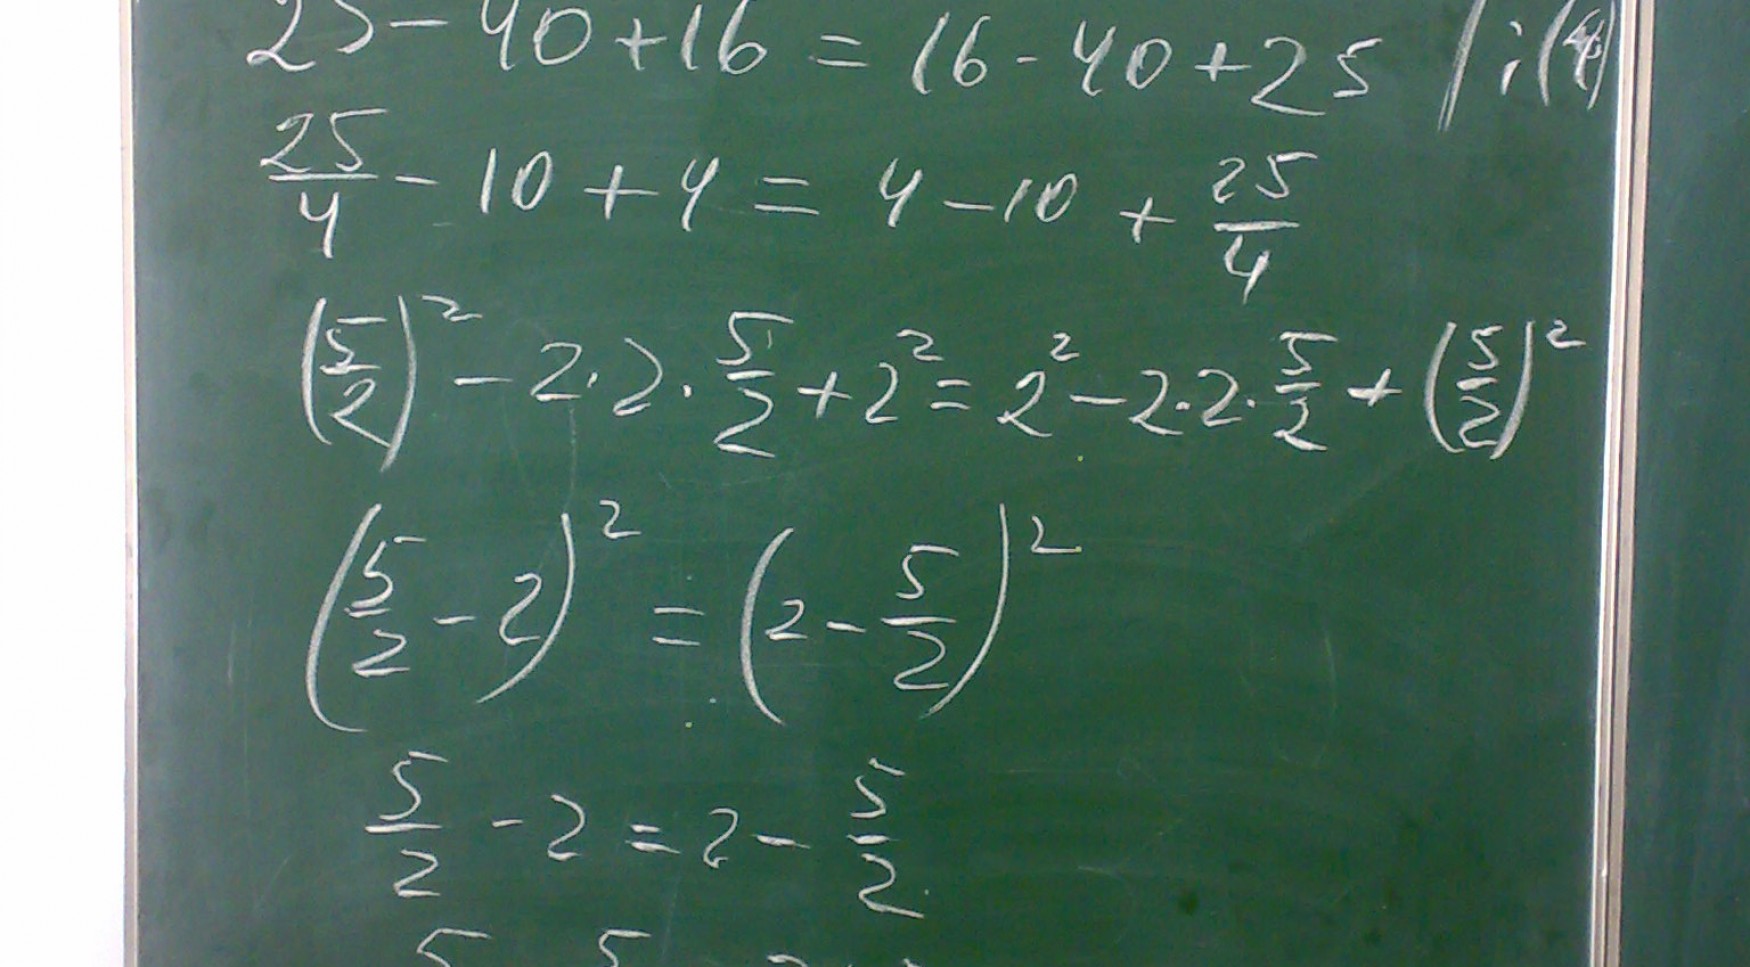 25 - 40 + 16 = 16 - 40 + 25 / : (4)
25/4 - 10 + 4 = 4 - 10 + 25/4
(5/2)² - 2·2·5/2 + 2² = 2² - 2·2·5/2 + (5/2)²
(5/2 - 2)² = (2 - 5/2)²
5/2 - 2 = 2 - 5/2